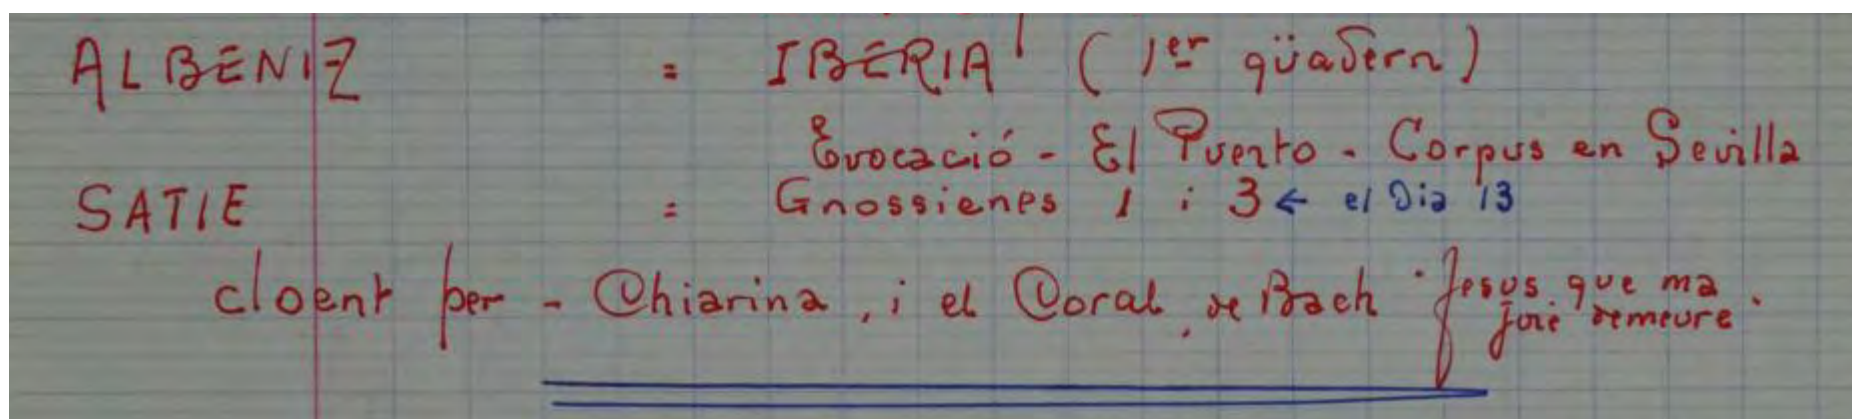 ALBENIZ = IBERIA (1er qüadern)
Evocació - El Puerto - Corpus en Sevilla
SATIE = Gnossienes 1 i 3 ← el Dia 13
cloent per - Chiarina, i el Coral, de Bach "Jesus que ma
joie demeure".